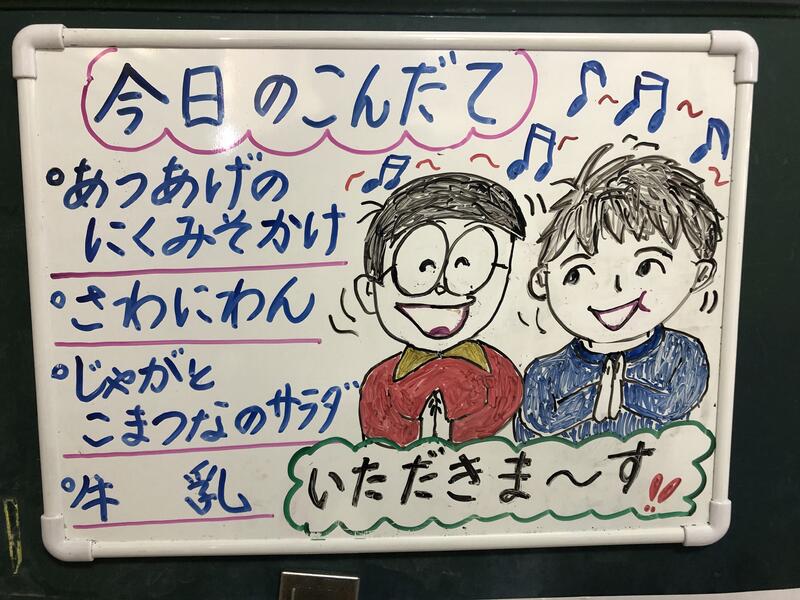 今日のこんだて
あつあげの
にくみそかけ
さわにわん
じゃがと
こまつなのサラダ
牛 乳
いただきま～す!!